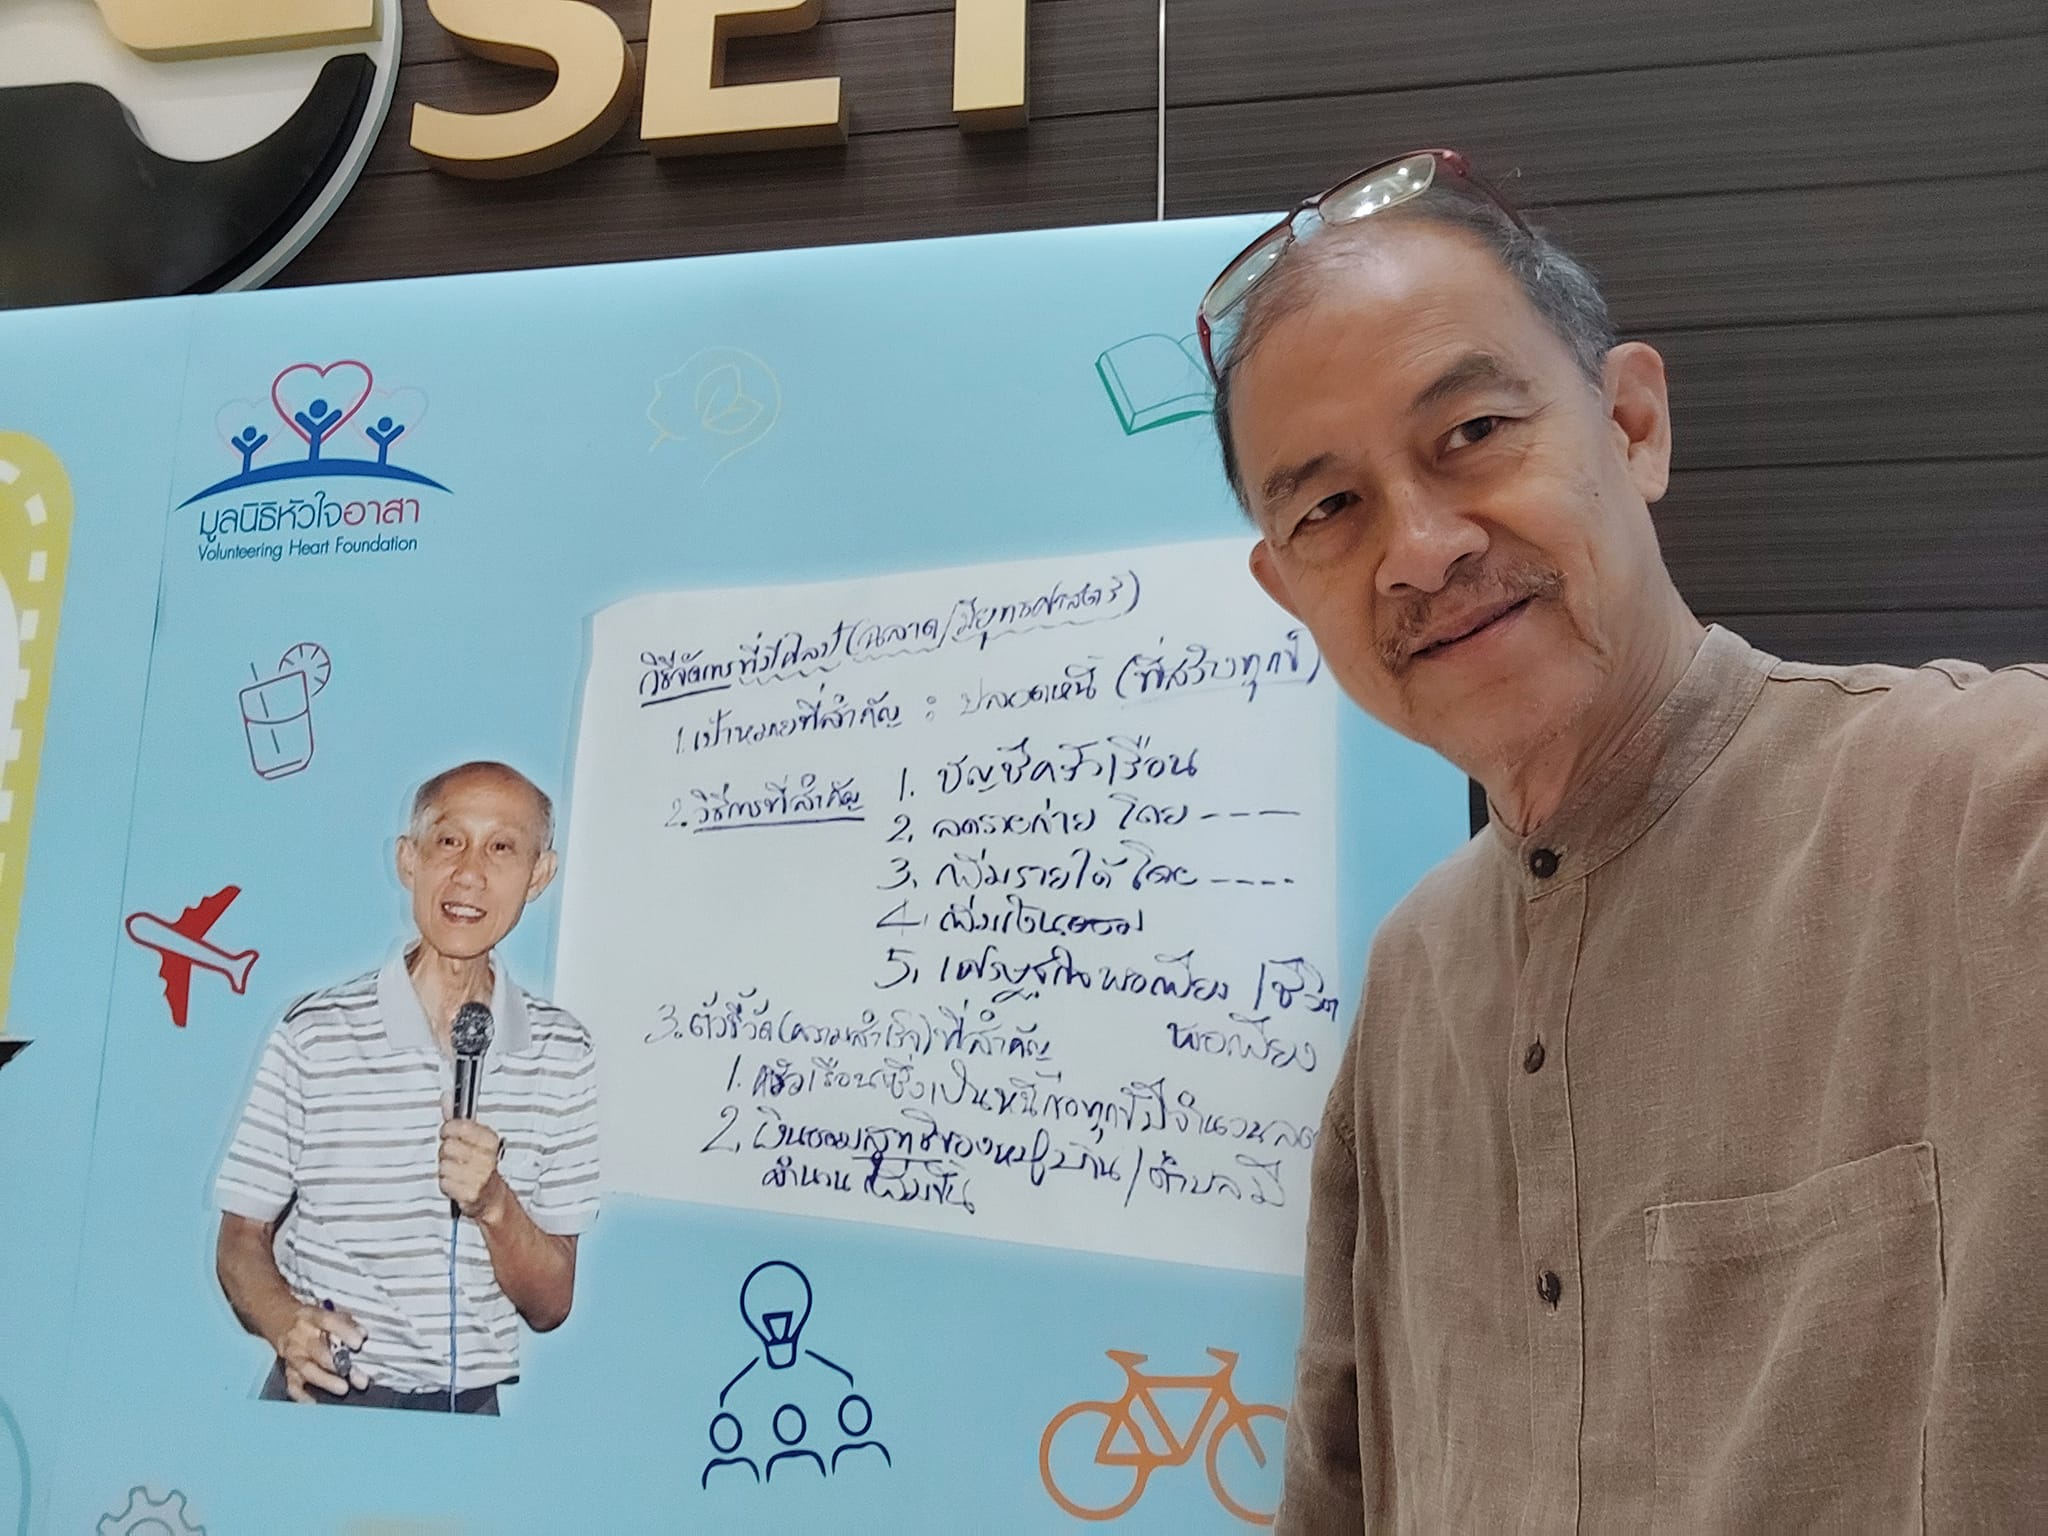 SET
มูลนิธิหัวใจอาสา
Volunteering Heart Foundation
วิธีจัดการที่ (ฉลาด/มียุทธศาสตร์)
1. เป้าหมายที่สำคัญ : ปลอดหนี้ (ที่สร้างทุกข์)
2. วิธีการที่สำคัญ
1. บัญชีครัวเรือน
2. ลดรายจ่าย โดย ----
3. เพิ่มรายได้ โดย ----
4. เพิ่มเงินออม
5. เศรษฐกิจพอเพียง / ชีวิต
พอเพียง
3. ตัวชี้วัด (ความสำเร็จ) ที่สำคัญ
1. ครัวเรือนซึ่งเป็นหนี้ก่อทุกข์มีจำนวนลด
2. เงินออมสุทธิของหมู่บ้าน / ตำบลมี
จำนวนเพิ่มขึ้น